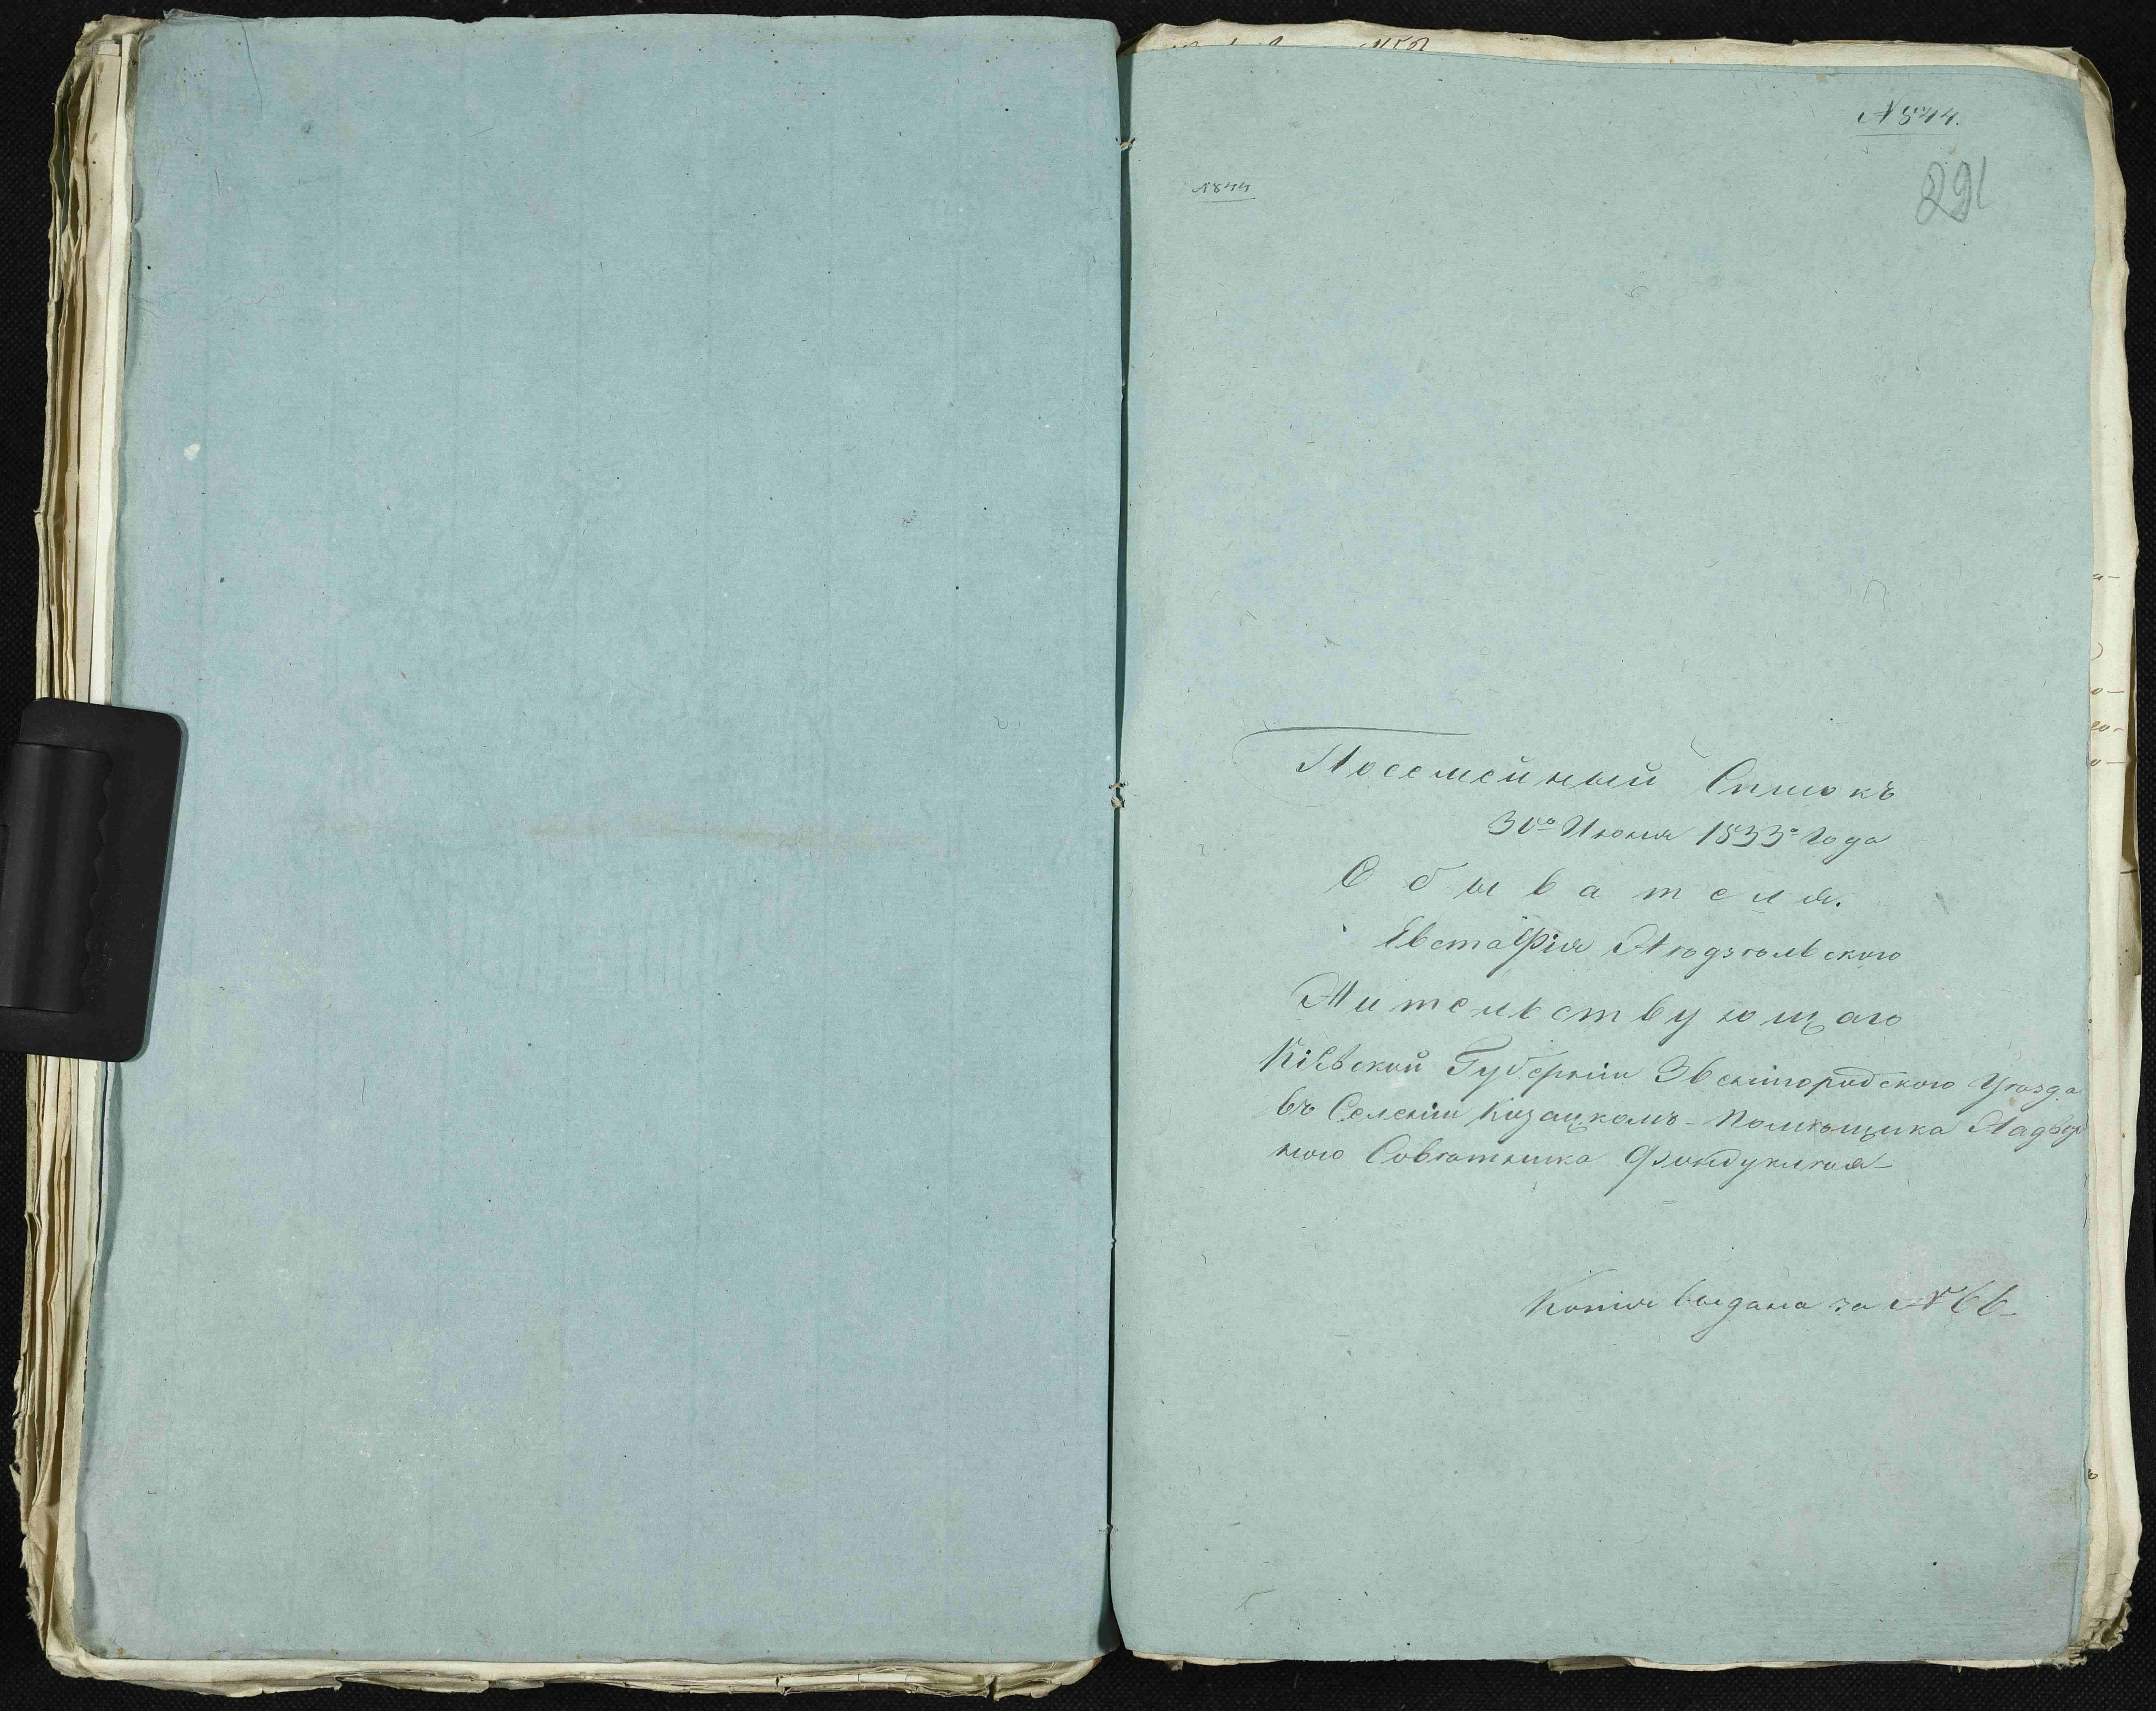 № 844.
291
№ 844
Посемейный Списокъ
30го Июня 1833го Года
Обывателя.
Евстафія
Жительствующаго
Кіевской Губерніи Звенигородского Уѣзда
въ Селеніи Козацкомъ - Помѣщика Надвор
ного Совѣтника Фундуклѣя -
Копія выдана за № 66 -